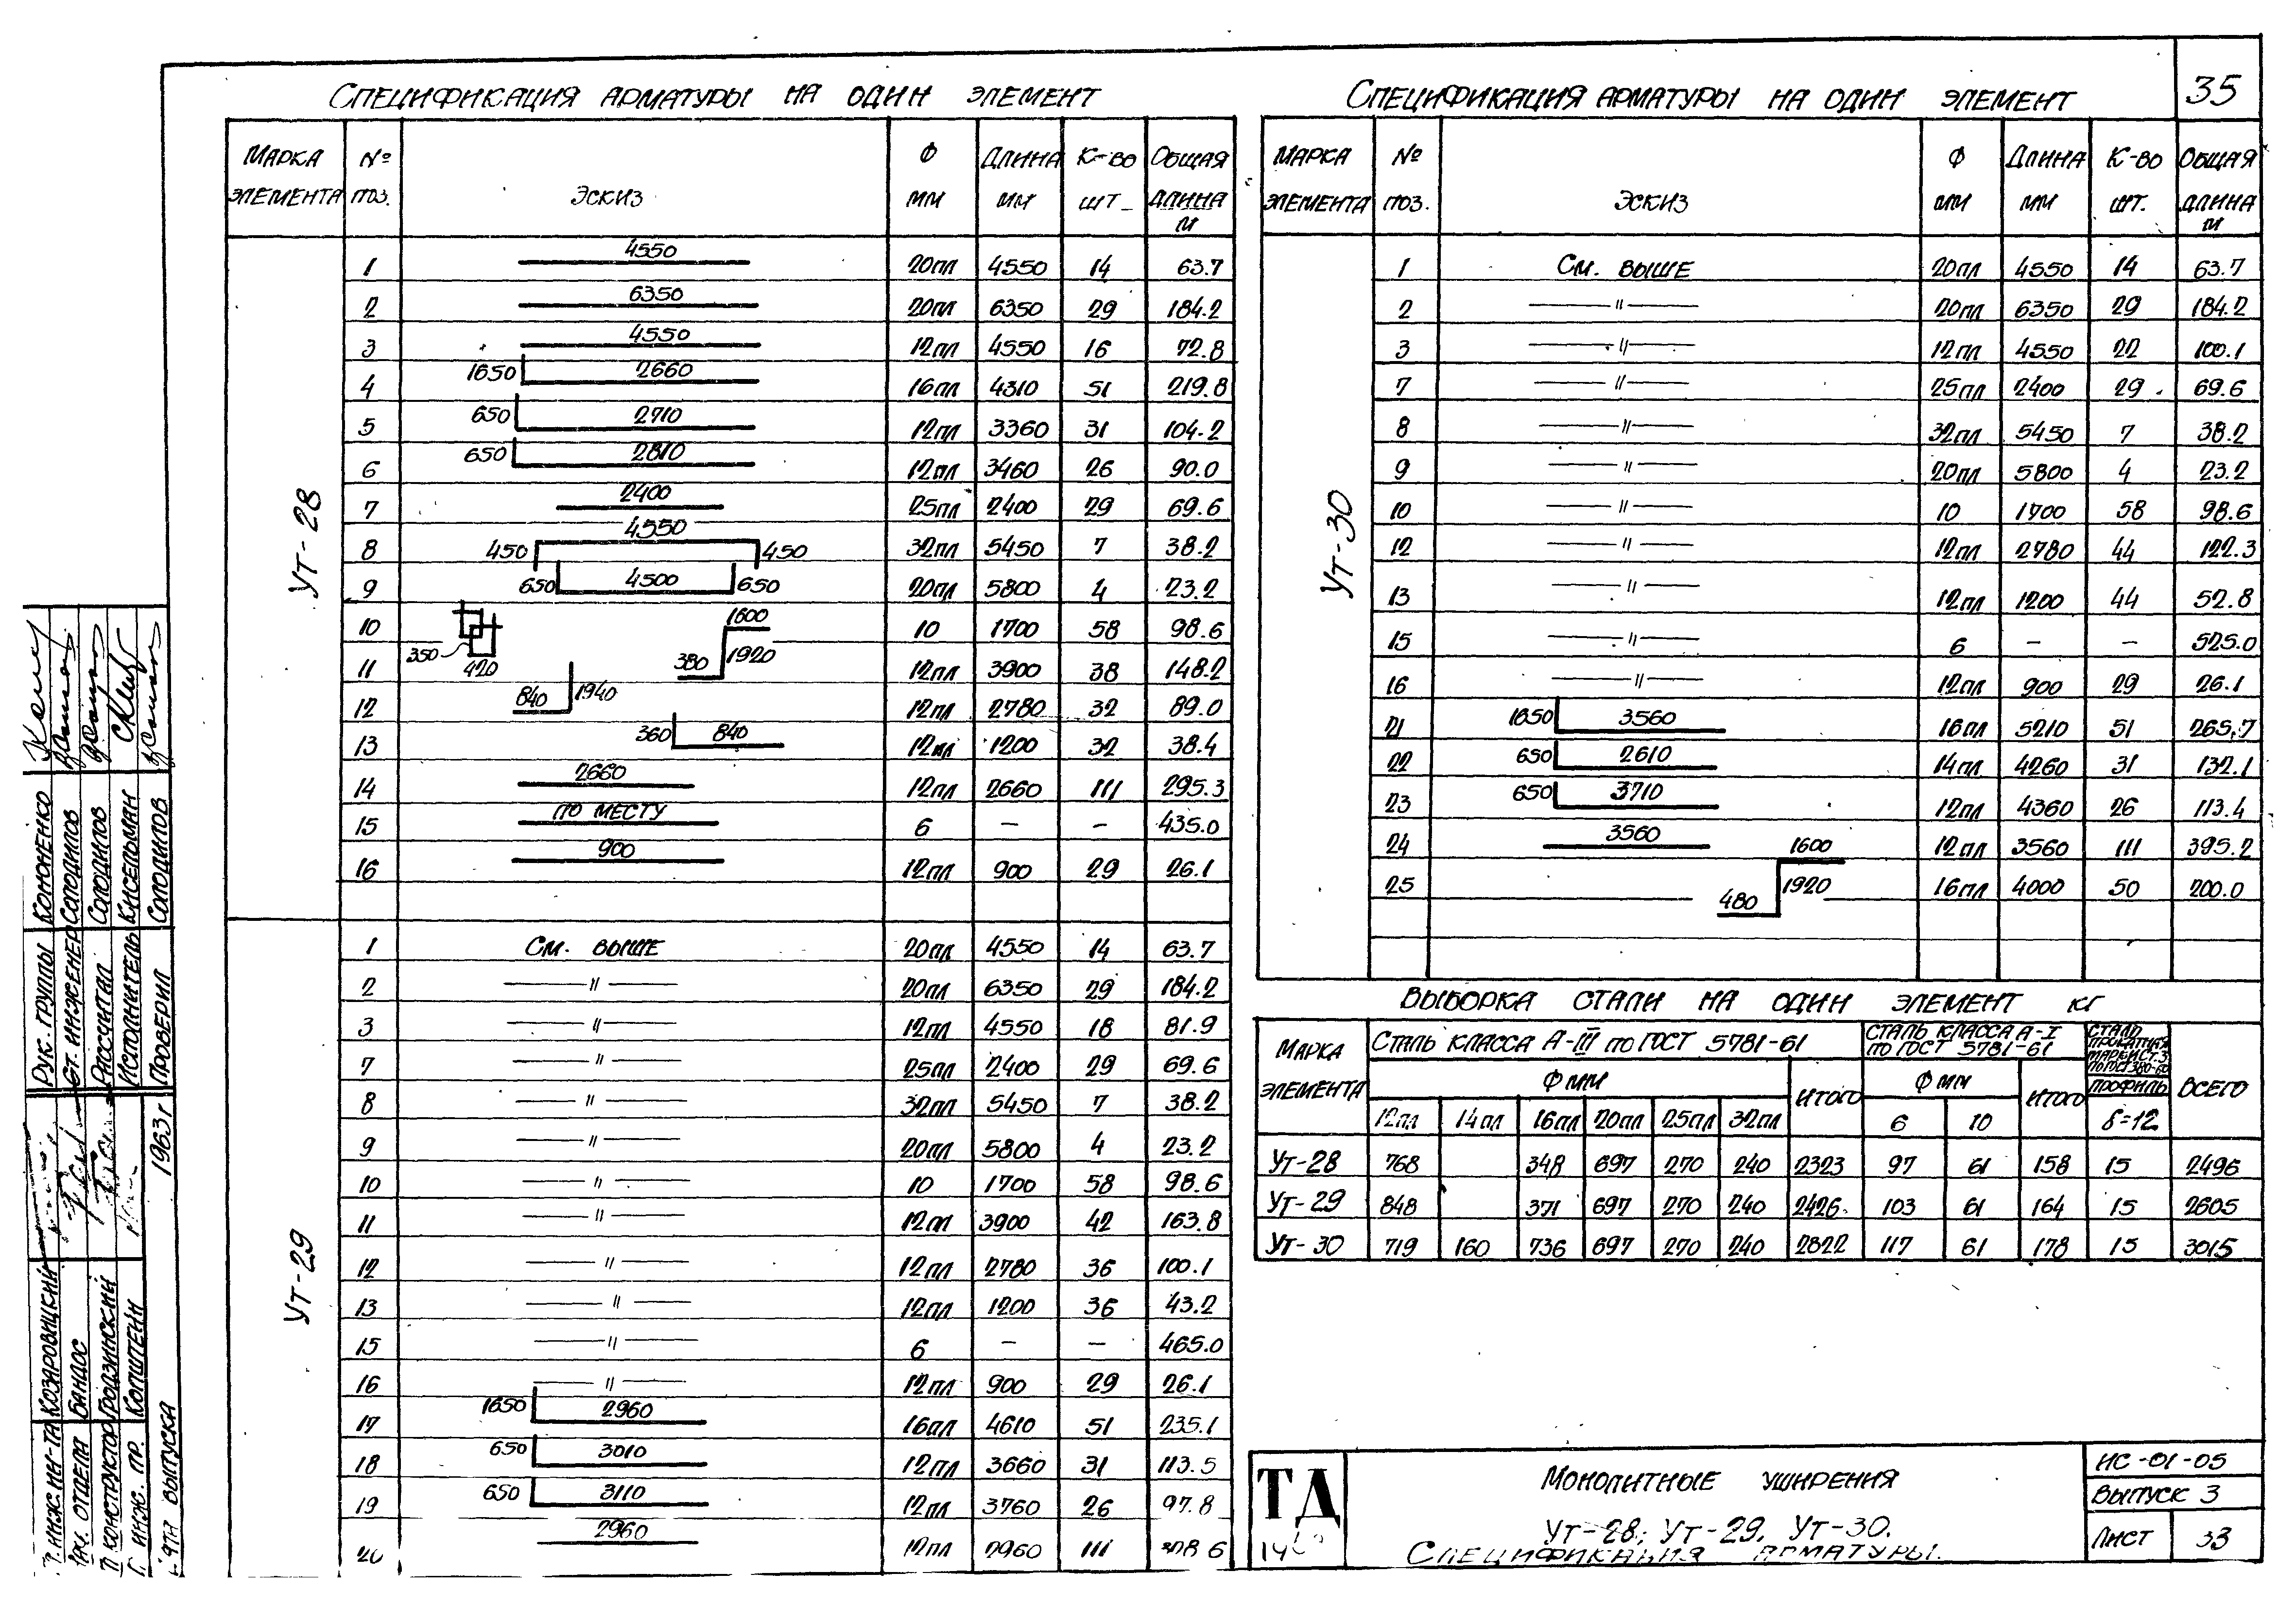 35
СПЕЦИФИКАЦИЯ АРМАТУРЫ НА ОДИН ЭЛЕМЕНТ
МАРКА ЭЛЕМЕНТА № ПОЗ. ЭСКИЗ Ф ММ ДЛИНА ММ К-ВО ШТ ОБЩАЯ ДЛИНА М
УТ-28
1 4550 20ПЛ 4550 14 63.7
2 6350 20ПЛ 6350 29 184.2
3 4550 12ПЛ 4550 16 72.8
4 1650 2660 16ПЛ 4310 51 219.8
5 650 2710 12ПЛ 3360 31 104.2
6 650 2810 12ПЛ 3460 26 90.0
7 2400 25ПЛ 2400 29 69.6
8 450 4550 450 32ПЛ 5450 7 38.2
9 650 4500 650 20ПЛ 5800 4 23.2
10 350 420 10 1700 58 98.6
11 380 1920 1600 12ПЛ 3900 38 148.2
12 840 1940 12ПЛ 2780 32 89.0
13 360 840 12ПЛ 1200 32 38.4
14 2660 12ПЛ 2660 111 295.3
15 ПО МЕСТУ 6 — — 435.0
16 900 12ПЛ 900 29 26.1
УТ-29
1 СМ. ВЫШЕ 20ПЛ 4550 14 63.7
2 —〃— 20ПЛ 6350 29 184.2
3 —〃— 12ПЛ 4550 18 81.9
7 —〃— 25ПЛ 2400 29 69.6
8 —〃— 32ПЛ 5450 7 38.2
9 —〃— 20ПЛ 5800 4 23.2
10 —〃— 10 1700 58 98.6
11 —〃— 12ПЛ 3900 42 163.8
12 —〃— 12ПЛ 2780 36 100.1
13 —〃— 12ПЛ 1200 36 43.2
15 —〃— 6 — — 465.0
16 —〃— 12ПЛ 900 29 26.1
17 1650 2960 16ПЛ 4610 51 235.1
18 650 3010 12ПЛ 3660 31 113.5
19 650 3110 12ПЛ 3760 26 97.8
20 2960 12ПЛ 2960 111 328.6
СПЕЦИФИКАЦИЯ АРМАТУРЫ НА ОДИН ЭЛЕМЕНТ
МАРКА ЭЛЕМЕНТА № ПОЗ. ЭСКИЗ Ф ММ ДЛИНА ММ К-ВО ШТ. ОБЩАЯ ДЛИНА М
УТ-30
1 СМ. ВЫШЕ 20ПЛ 4550 14 63.7
2 —〃— 20ПЛ 6350 29 184.2
3 —〃— 12ПЛ 4550 22 100.1
7 —〃— 25ПЛ 2400 29 69.6
8 —〃— 32ПЛ 5450 7 38.2
9 —〃— 20ПЛ 5800 4 23.2
10 —〃— 10 1700 58 98.6
12 —〃— 12ПЛ 2780 44 122.3
13 —〃— 12ПЛ 1200 44 52.8
15 —〃— 6 — — 525.0
16 —〃— 12ПЛ 900 29 26.1
21 1650 3560 16ПЛ 5210 51 265.7
22 650 2610 14ПЛ 4260 31 132.1
23 650 3710 12ПЛ 4360 26 113.4
24 3560 12ПЛ 3560 111 395.2
25 480 1920 1600 16ПЛ 4000 50 200.0
ВЫБОРКА СТАЛИ НА ОДИН ЭЛЕМЕНТ КГ
МАРКА ЭЛЕМЕНТА СТАЛЬ КЛАССА А-III ПО ГОСТ 5781-61 СТАЛЬ КЛАССА А-I ПО ГОСТ 5781-61 СТАЛЬ ПРОКАТНАЯ МАРКИ СТ.3 ПО ГОСТ 380-60 ВСЕГО
Ф ММ ИТОГО Ф ММ ИТОГО ПРОФИЛЬ
12ПЛ 14ПЛ 16ПЛ 20ПЛ 25ПЛ 32ПЛ 6 10 δ=12
УТ-28 768 348 697 270 240 2323 97 61 158 15 2496
УТ-29 848 371 697 270 240 2426 103 61 164 15 2605
УТ-30 719 160 736 697 270 240 2822 117 61 178 15 3015
ТД
МОНОЛИТНЫЕ УШИРЕНИЯ
УТ-28; УТ-29, УТ-30.
СПЕЦИФИКАЦИЯ АРМАТУРЫ.
ИС-01-05
ВЫПУСК 3
ЛИСТ 33
РУК. ГРУППЫ КОНОНЕНКО
СТ. ИНЖЕНЕР СОЛОДИЛОВ
РАССЧИТАЛ СОЛОДИЛОВ
ИСПОЛНИТЕЛЬ КИСЕЛЬМАН
ПРОВЕРИЛ СОЛОДИЛОВ
ИНЖ. ИН-ТА КОЗИРОВИЦКИЙ
НАЧ. ОТДЕЛА БАНДОС
КОНСТРУКТОР ГРОДЗИНСКИЙ
ИНЖ. ПР. КОПШТЕЙН
ВЫПУСКА 1963г